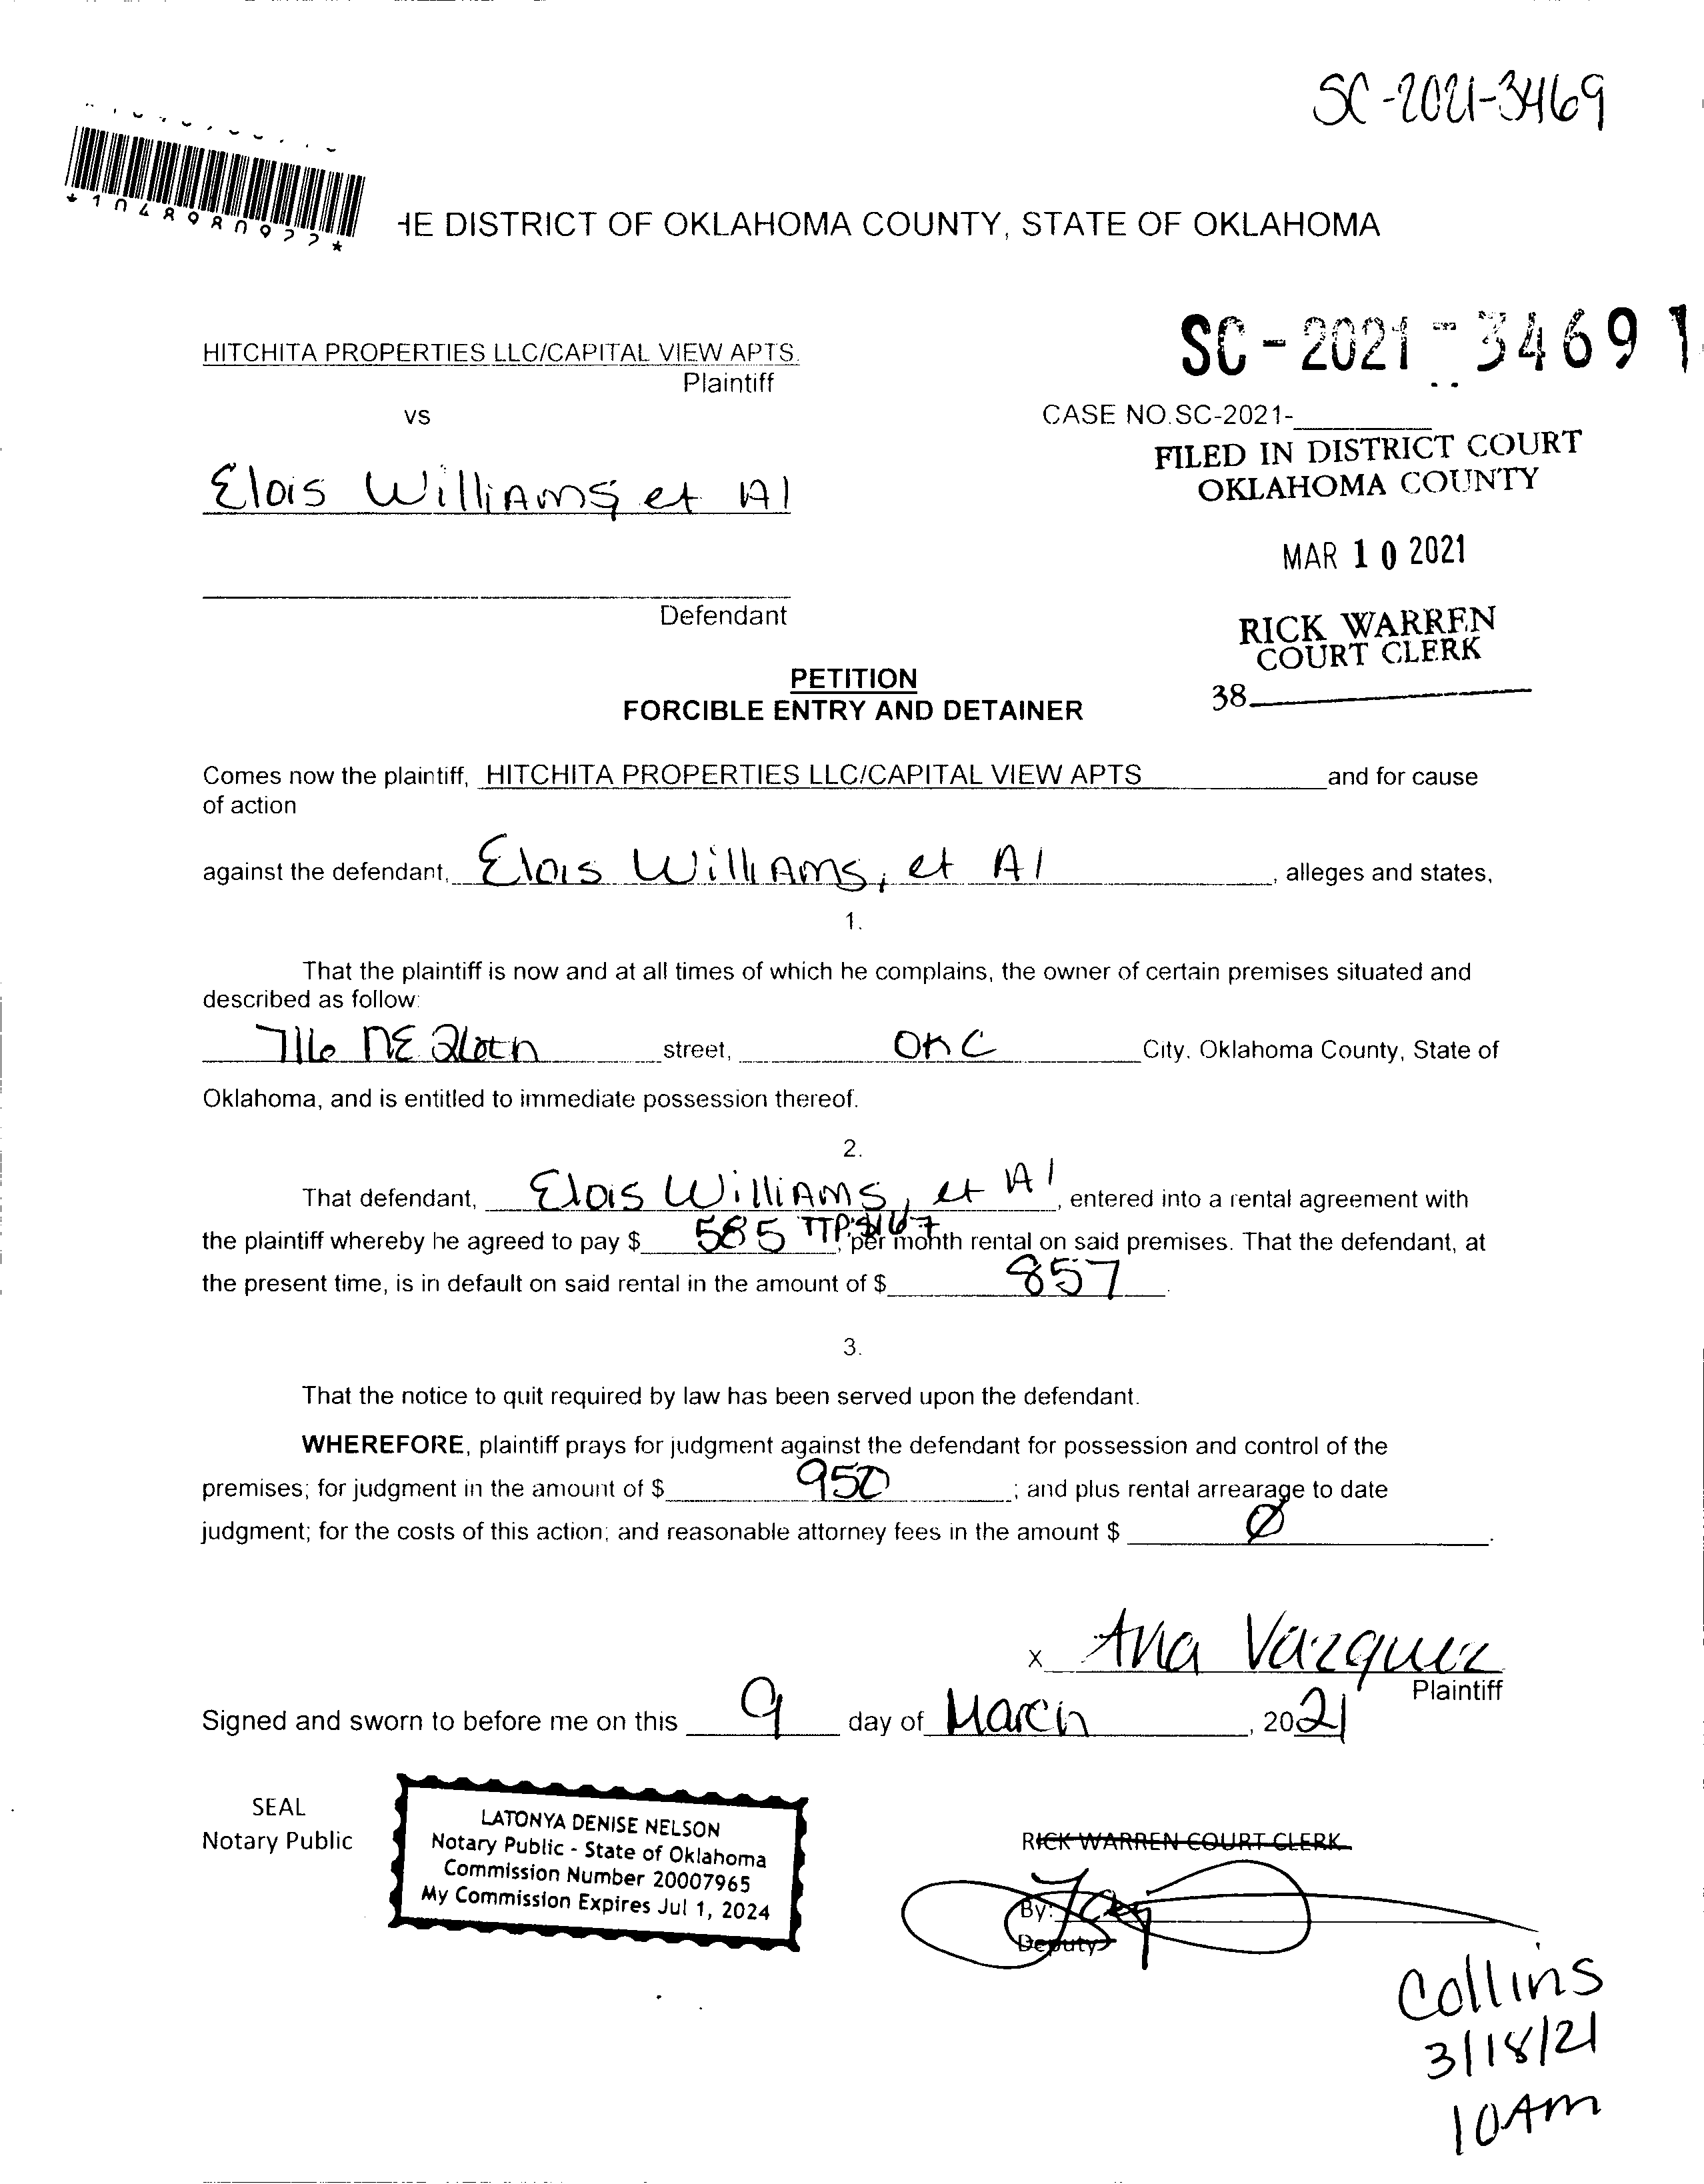 SC-2021-3469
*1048980922*
HE DISTRICT OF OKLAHOMA COUNTY, STATE OF OKLAHOMA
HITCHITA PROPERTIES LLC/CAPITAL VIEW APTS.
Plaintiff
SC-2021-3469 1
vs
CASE NO.SC-2021-
FILED IN DISTRICT COURT
OKLAHOMA COUNTY
Elois Williams et Al
MAR 10 2021
Defendant
RICK WARREN
COURT CLERK
38
PETITION
FORCIBLE ENTRY AND DETAINER
Comes now the plaintiff, HITCHITA PROPERTIES LLC/CAPITAL VIEW APTS and for cause
of action
against the defendant, Elois Williams, et Al, alleges and states,
1.
That the plaintiff is now and at all times of which he complains, the owner of certain premises situated and
described as follow:
716 NE 26th street, OKC City, Oklahoma County, State of
Oklahoma, and is entitled to immediate possession thereof.
2.
That defendant, Elois Williams, et Al, entered into a rental agreement with
the plaintiff whereby he agreed to pay $ 585 TTP:$167, per month rental on said premises. That the defendant, at
the present time, is in default on said rental in the amount of $ 857.
3.
That the notice to quit required by law has been served upon the defendant.
WHEREFORE, plaintiff prays for judgment against the defendant for possession and control of the
premises; for judgment in the amount of $ 950; and plus rental arrearage to date
judgment; for the costs of this action; and reasonable attorney fees in the amount $ Ø.
x Ana Vazquez
Plaintiff
Signed and sworn to before me on this 9 day of March, 2021
SEAL
Notary Public
LATONYA DENISE NELSON
Notary Public - State of Oklahoma
Commission Number 20007965
My Commission Expires Jul 1, 2024
RICK WARREN COURT CLERK
By:
Deputy
Collins
3/18/21
10Am